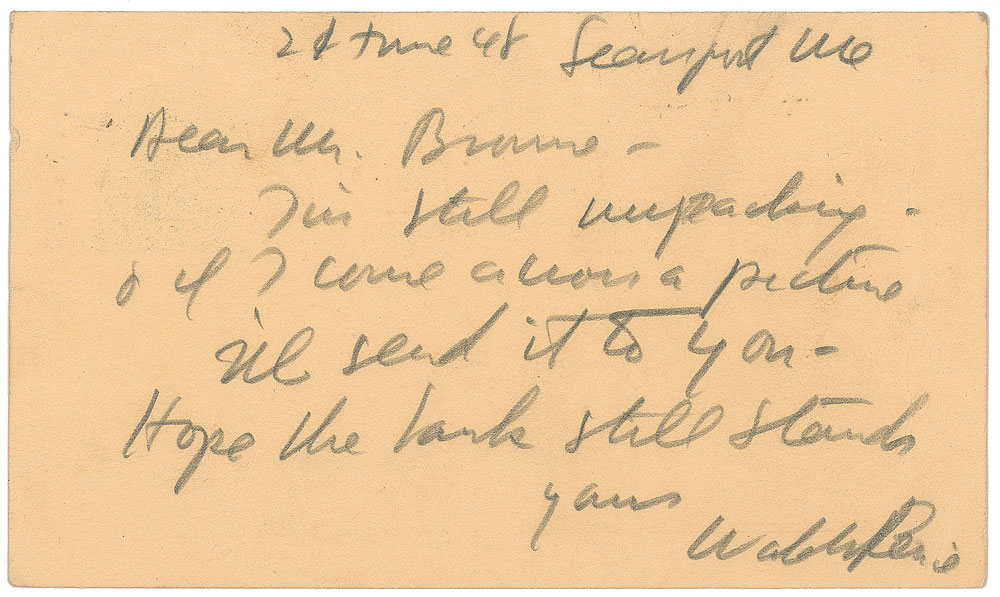 June 48 Searsport Me
Dear Mr. Browne –
I'm still unpacking –
& if I come across a picture
I'll send it to you –
Hope the still stands
yours
Waldo Peirce